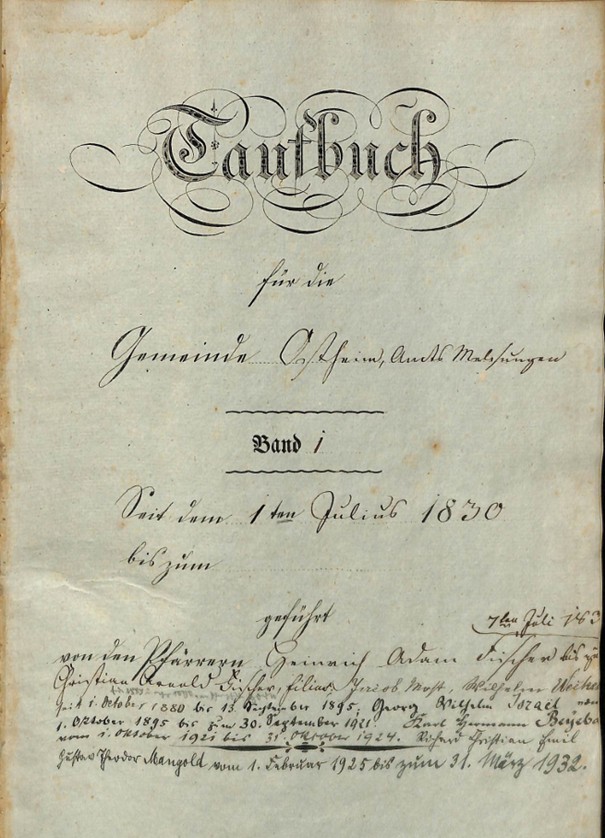 Taufbuch
für die
Gemeinde Ostheim, Amts Melsungen
Band 1
Seit dem 1ten Julius 1830
bis zum
geführt
7ten Juli 183
von den Pfärrern Heinrich Adam Fischer bis zu
Christian Arnold Fischer, filius, Jacob Most, Wilhelm
seit 1. October 1880 bis 13. September 1895, Georg Wilhelm Israel von
1. Oktober 1895 bis zum 30. September 1921. Karl Hermann
vom 1. Oktober 1921 bis 31. Oktober 1924. Richard Christian Emil
Gustav Theodor Mangold vom 1. Februar 1925 bis zum 31. März 1932.